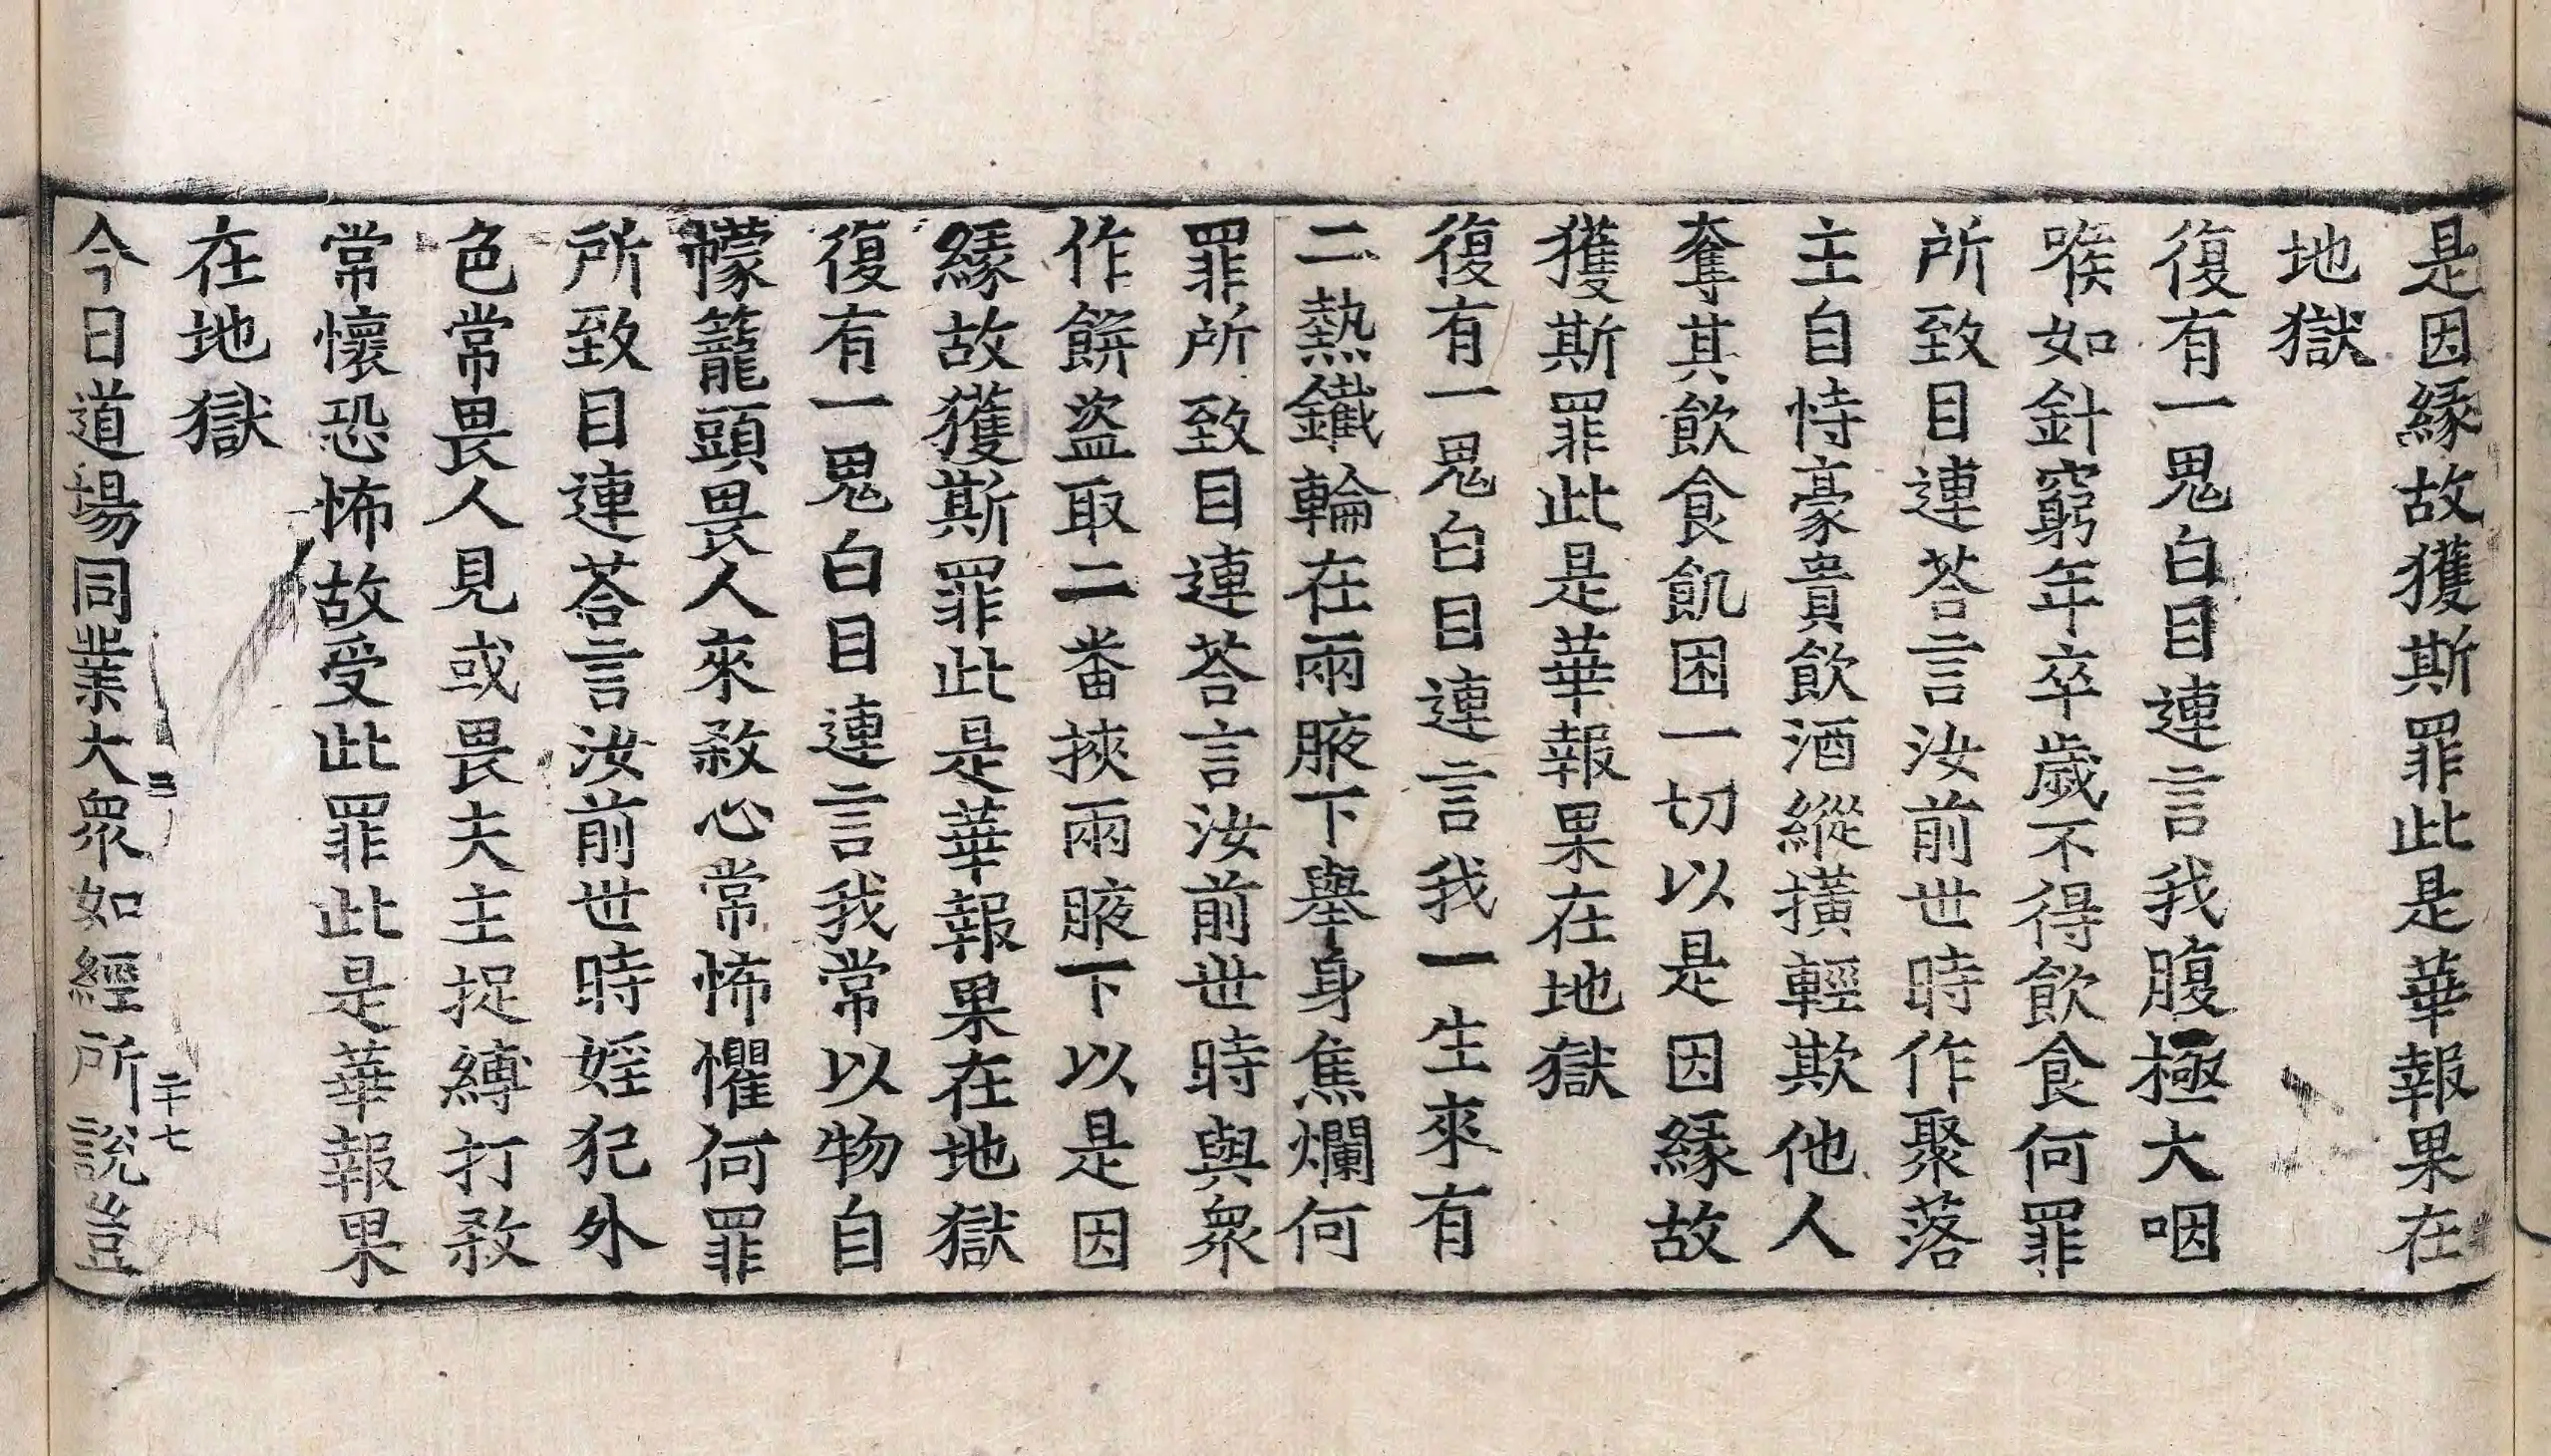 是因緣故獲斯罪此是華報果在
地獄
復有一鬼白目連言我腹極大咽
喉如針窮年卒歲不得飲食何罪
所致目連荅言汝前世時作聚落
主自恃豪貴飲酒縱橫輕欺他人
奪其飲食飢困一切以是因緣故
獲斯罪此是華報果在地獄
復有一鬼白目連言我一生來有
二熱鐵輪在兩腋下舉身焦爛何
罪所致目連荅言汝前世時與衆
作餅盜取二番挾兩腋下以是因
緣故獲斯罪此是華報果在地獄
復有一鬼白目連言我常以物自
幪籠頭畏人來敎心常怖懼何罪
所致目連荅言汝前世時婬犯外
色常畏人見或畏夫主捉縛打敎
常懷恐怖故受此罪此是華報果
在地獄
三 二十七
今日道場同業大衆如經所說豈